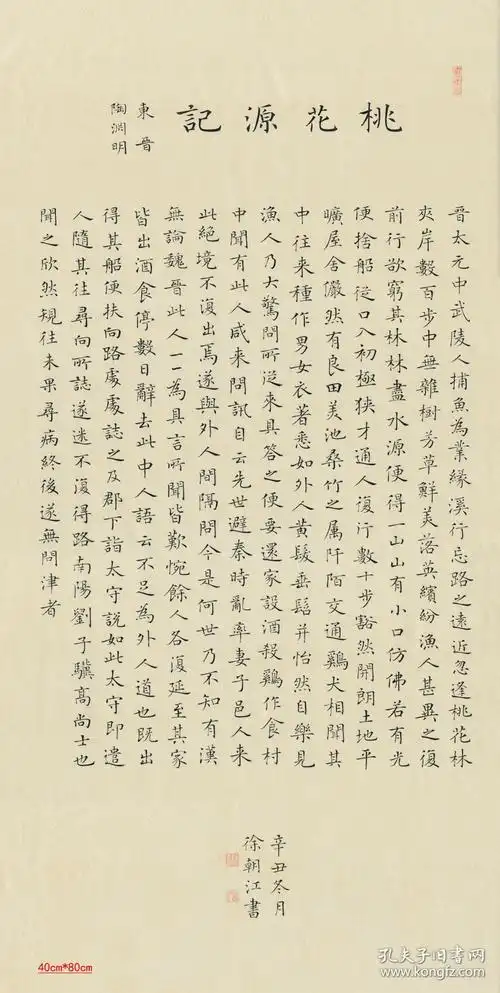 桃花源記
東晉
陶渊明
晉太元中武陵人捕魚為業緣溪行忘路之遠近忽逢桃花林
夾岸數百步中無雜樹芳草鮮美落英繽紛漁人甚異之復
前行欲窮其林林盡水源便得一山山有小口仿佛若有光
便捨船從口入初極狹才通人復行數十步豁然開朗土地平
曠屋舍儼然有良田美池桑竹之属阡陌交通鷄犬相聞其
中往来種作男女衣著悉如外人黄髮垂髫并怡然自樂見
漁人乃大驚問所從来具答之便要還家設酒殺鷄作食村
中聞有此人咸来問訊自云先世避秦時亂率妻子邑人来
此絕境不復出焉遂與外人間隔問今是何世乃不知有漢
無論魏晉此人一一為具言所聞皆歎惋餘人各復延至其家
皆出酒食停數日辭去此中人語云不足為外人道也既出
得其船便扶向路處處誌之及郡下詣太守説如此太守即遣
人隨其往尋向所誌遂迷不復得路南陽劉子驥高尚士也
聞之欣然規往未果尋病終後遂無問津者
辛丑冬月
徐朝江書
40cm*80cm
孔夫子旧书网
www.kongfz.com